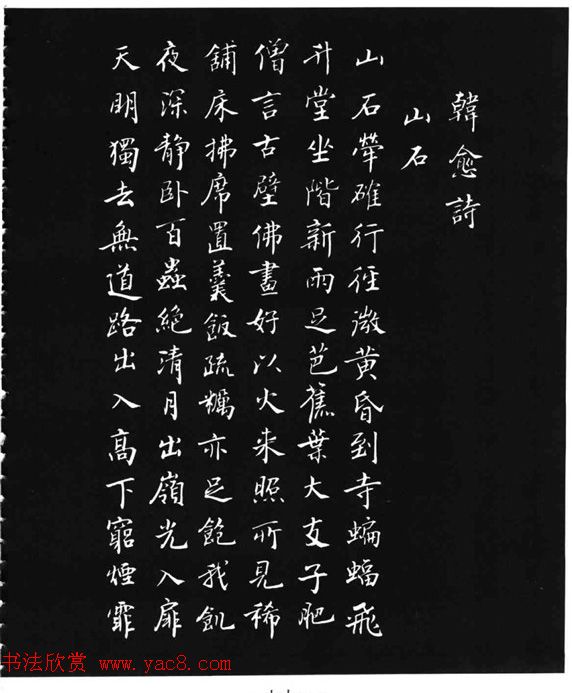 韓愈詩
山石
山石犖确行徑微黃昏到寺蝙蝠飛
升堂坐階新雨足芭蕉葉大支子肥
僧言古壁佛畫好以火來照所見稀
舖床拂席置羹飯疏糲亦足飽我飢
夜深静卧百蟲絶清月出嶺光入扉
天明獨去無道路出入高下窮煙霏
书法欣赏 www.yac8.com